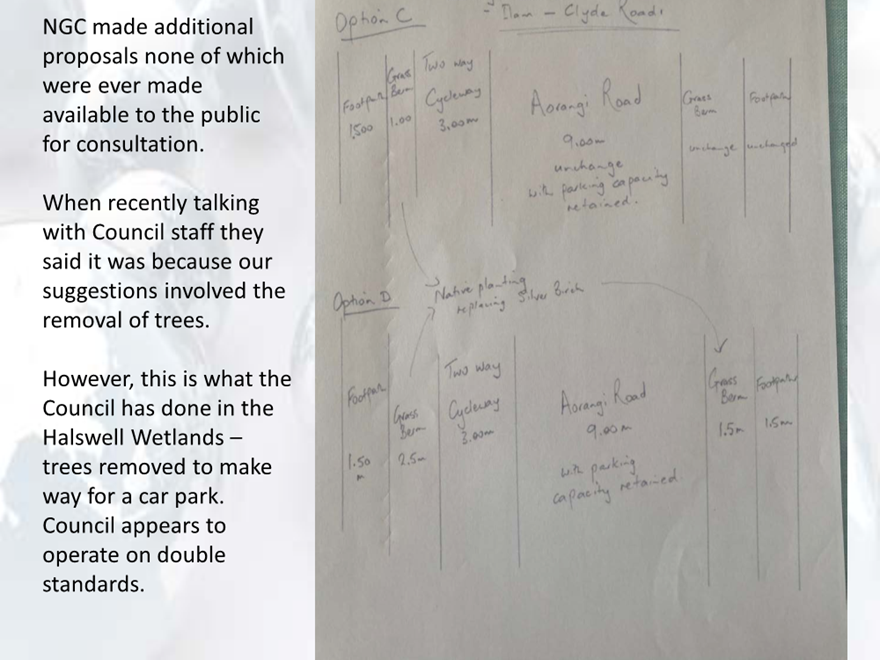 NGC made additional
proposals none of which
were ever made
available to the public
for consultation.
When recently talking
with Council staff they
said it was because our
suggestions involved the
removal of trees.
However, this is what the
Council has done in the
Halswell Wetlands –
trees removed to make
way for a car park.
Council appears to
operate on double
standards.
Option C
– Clyde Road
Footpath
1.500
Grass
Berm
1.00
Two way
Cycleway
3.00m
Aorangi Road
9.00m
unchange
with parking capacity
retained.
Grass
Berm
unchange
Footpath
unchanged
Native planting
replacing Silver Birch
Option D
Footpath
1.50
m
Grass
Berm
2.5m
Two way
Cycleway
3.00m
Aorangi Road
9.00m
with parking
capacity retained.
Grass
Berm
1.5m
Footpath
1.5m